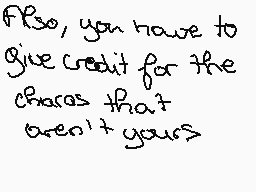 Also, you have to
give credit for the
charas that
aren't yours